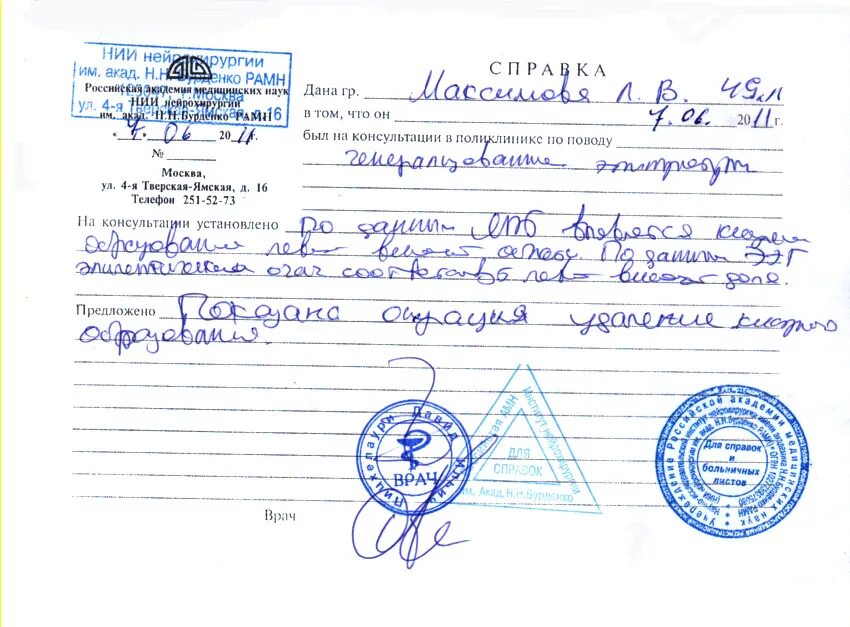 НИИ нейрохирургии
им. акад. Н.Н. Бурденко РАМН
г. Москва
ул. 4-я Тверская-Ямская, д.16
Российская академия медицинских наук
НИИ нейрохирургии
им. акад. Н.Н.Бурденко РАМН
« 7 » 06 2011 г.
№
Москва,
ул. 4-я Тверская-Ямская, д. 16
Телефон 251-52-73
СПРАВКА
Дана гр. Максимова Л. В. 49л
в том, что он 7.06. 2011 г.
был на консультации в поликлинике по поводу
На консультации установлено По данным кистозн
образование лев височн По данным ЭЭГ
эпилептический очаг соответств лев височн доле.
Предложено Показана операция удаление кистозного
образования.
Врач
Пицхелаури Давид Ильич
ВРАЧ
Институт нейрохирургии
им. Акад. Н.Н.Бурденко
ДЛЯ
СПРАВОК
Учреждение Российской академии медицинских наук
Для справок
и
больничных
листов